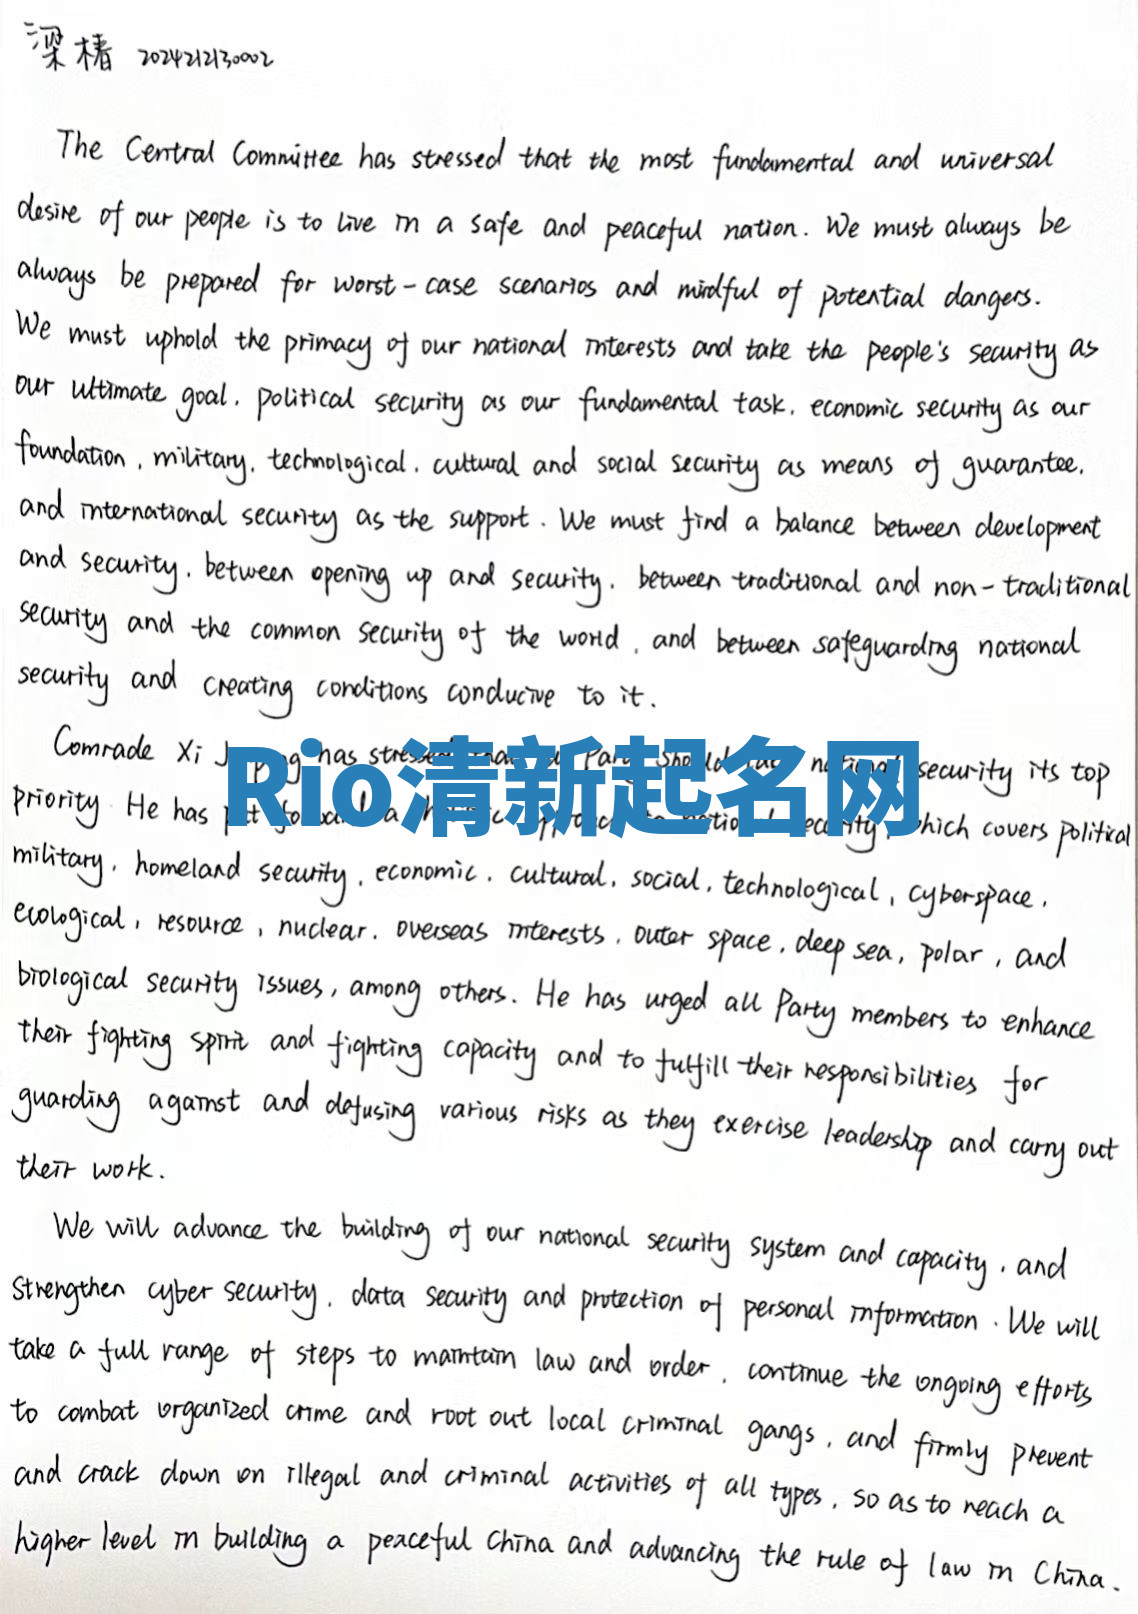 梁楮 2024212130002
The Central Committee has stressed that the most fundamental and universal
desire of our people is to live in a safe and peaceful nation. We must always be
always be prepared for worst-case scenarios and mindful of potential dangers.
We must uphold the primacy of our national interests and take the people's security as
our ultimate goal, political security as our fundamental task, economic security as our
foundation, military, technological, cultural and social security as means of guarantee,
and international security as the support. We must find a balance between development
and security, between opening up and security, between traditional and non-traditional
security and the common security of the world, and between safeguarding national
security and creating conditions conducive to it.
Comrade Xi has stressed national security its top
Rio清新起名网
priority. He has put forward a approach to national security, which covers political
military, homeland security, economic, cultural, social, technological, cyberspace,
ecological, resource, nuclear, overseas interests, outer space, deep sea, polar, and
biological security issues, among others. He has urged all Party members to enhance
their fighting spirit and fighting capacity and to fulfill their responsibilities for
guarding against and defusing various risks as they exercise leadership and carry out
their work.
We will advance the building of our national security system and capacity, and
strengthen cyber security, data security and protection of personal information. We will
take a full range of steps to maintain law and order, continue the ongoing efforts
to combat organized crime and root out local criminal gangs, and firmly prevent
and crack down on illegal and criminal activities of all types, so as to reach a
higher level in building a peaceful China and advancing the rule of law in China.